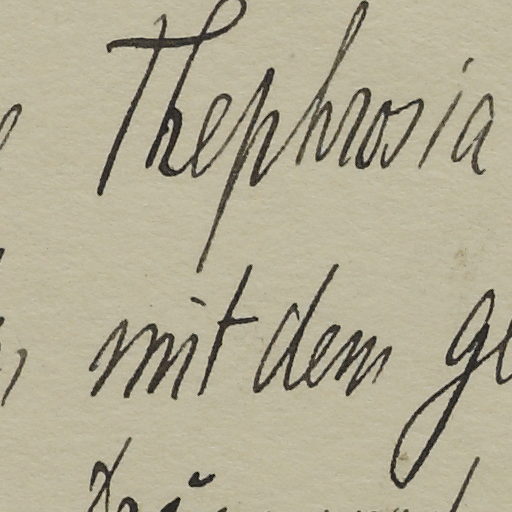 Thephrosia
, mit dem ge